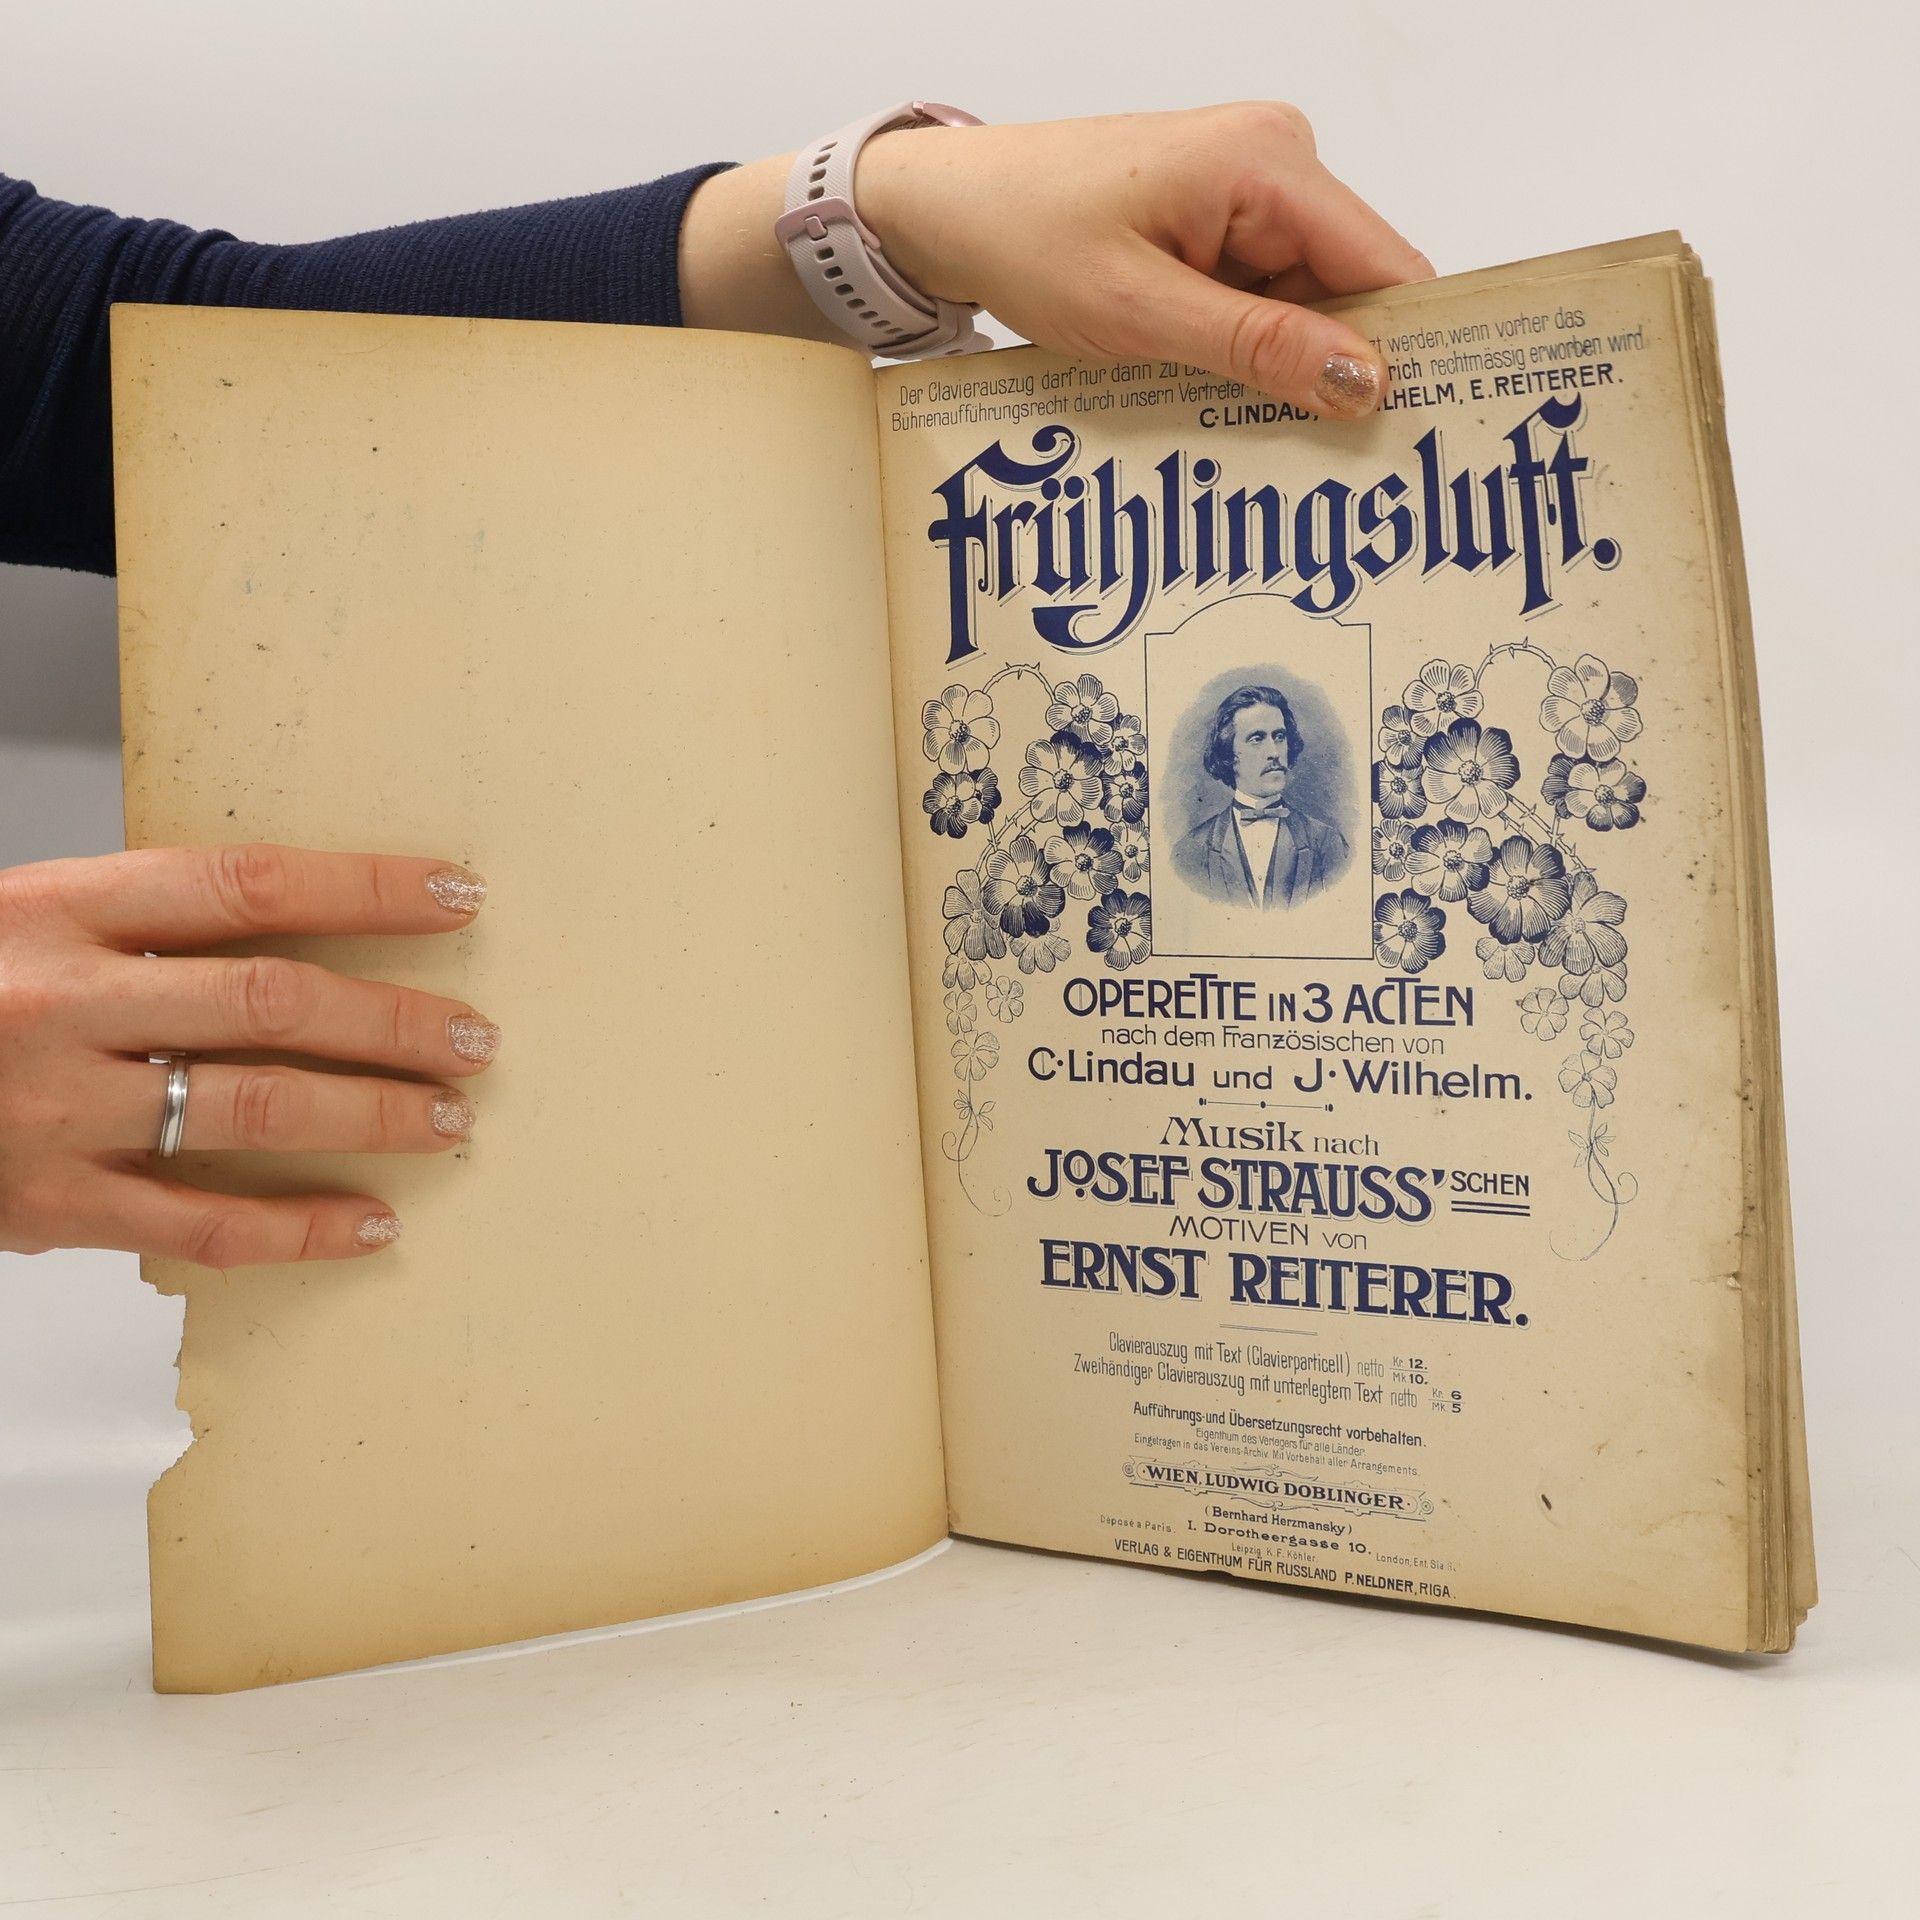 Der Clavierauszug darf nur dann zu werden, wenn vorher das
Bühnenaufführungsrecht durch unsern Vertreter rechtmässig erworben wird.
C. LINDAU, E. REITERER.
Frühlingsluft.
OPERETTE IN 3 ACTEN
nach dem Französischen von
C. Lindau und J. Wilhelm.
Musik nach
JOSEF STRAUSS'SCHEN
MOTIVEN von
ERNST REITERER.
Clavierauszug mit Text (Clavierparticell) netto Kr. 12. Mk 10.
Zweihändiger Clavierauszug mit unterlegtem Text netto Kr. 6 Mk. 5
Aufführungs- und Übersetzungsrecht vorbehalten.
Eigenthum des Verlegers für alle Länder.
Eingetragen in das Vereins-Archiv. Mit Vorbehalt aller Arrangements.
WIEN, LUDWIG DOBLINGER
(Bernhard Herzmansky)
Déposé à Paris. I. Dorotheergasse 10. London, Ent. Sta.
Leipzig K. F. Köhler.
VERLAG & EIGENTHUM FÜR RUSSLAND P. NELDNER, RIGA.